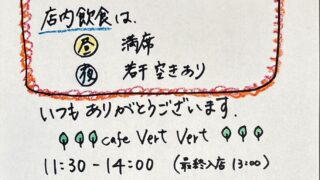 店内飲食は、
昼 満席
夜 若干空きあり
いつもありがとうございます.
cafe Vert Vert
11:30-14:00 (最終入店 13:00)